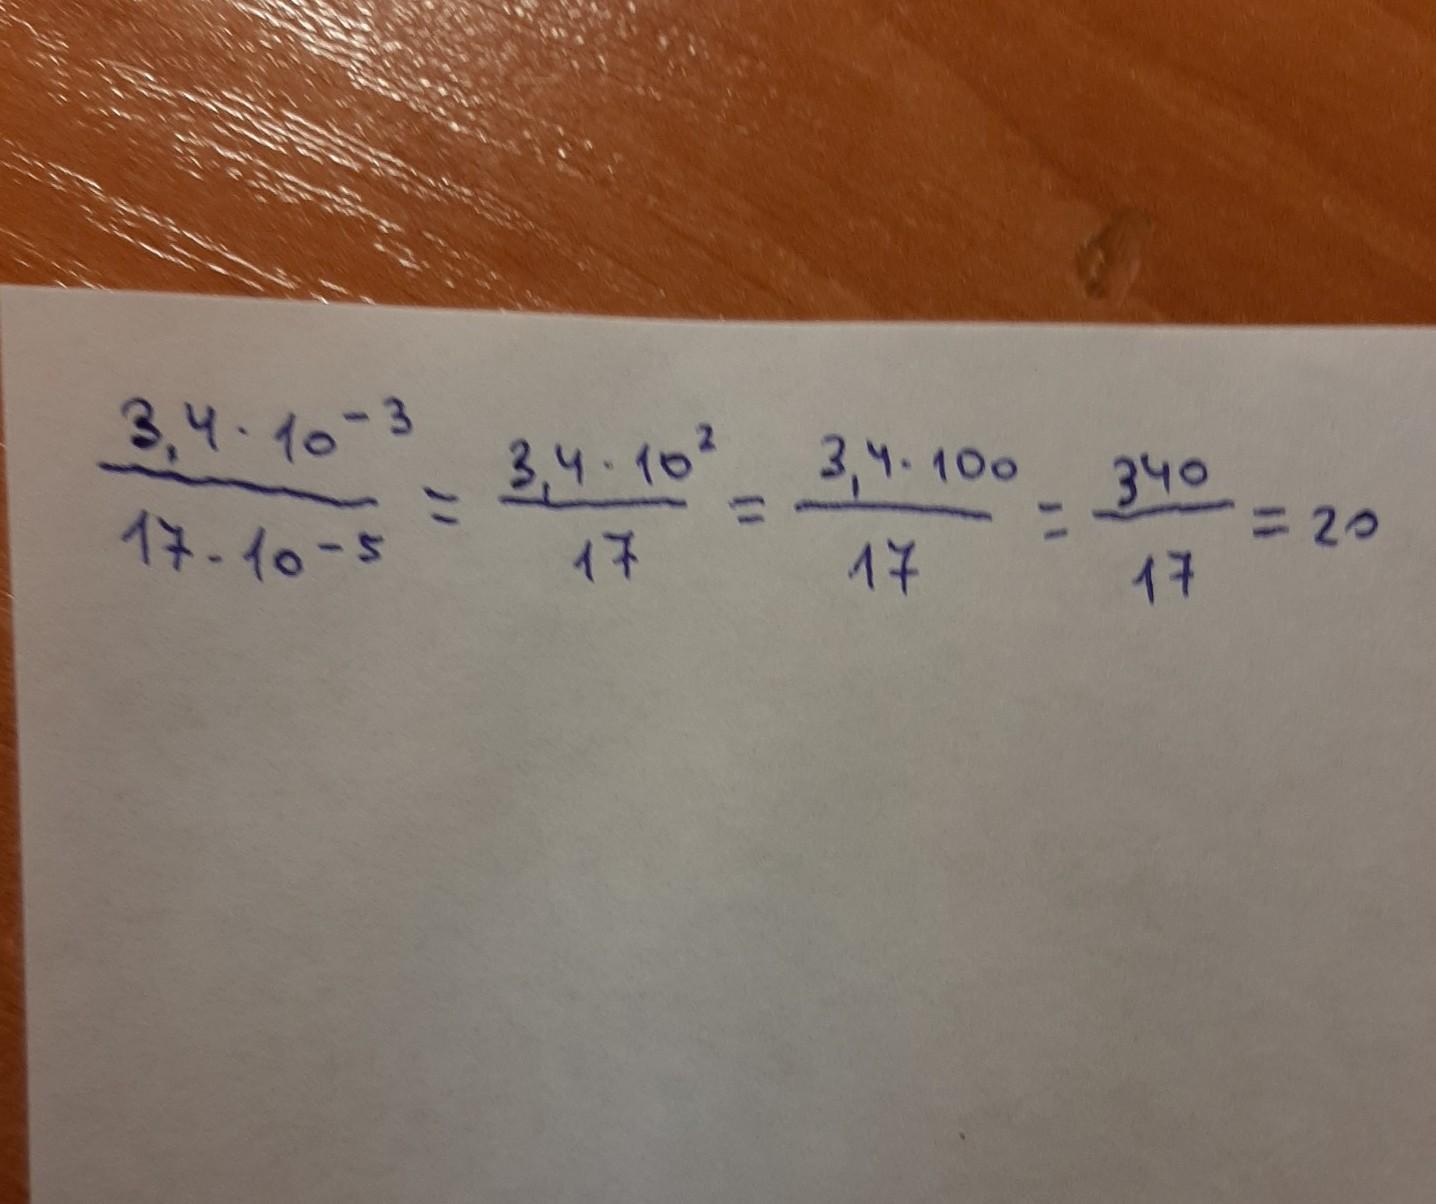 3,4 · 10⁻³ / 17 · 10⁻⁵ = 3,4 · 10² / 17 = 3,4 · 100 / 17 = 340 / 17 = 20